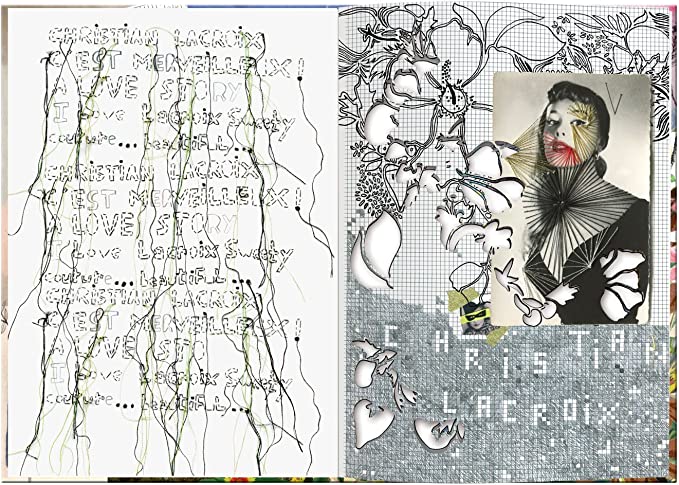 CHRISTIAN LACROIX
C'EST MERVEILLEUX!
A LOVE STORY
I Love Lacroix Sweety
couture... beautiful...
CHRISTIAN LACROIX
C'EST MERVEILLEUX!
A LOVE STORY
I Love Lacroix Sweety
couture... beautiful...
CHRISTIAN LACROIX
C'EST MERVEILLEUX!
A LOVE STO
I Love Lacroix Sweety
couture... beautiful...
CHRISTIAN
LACROIX